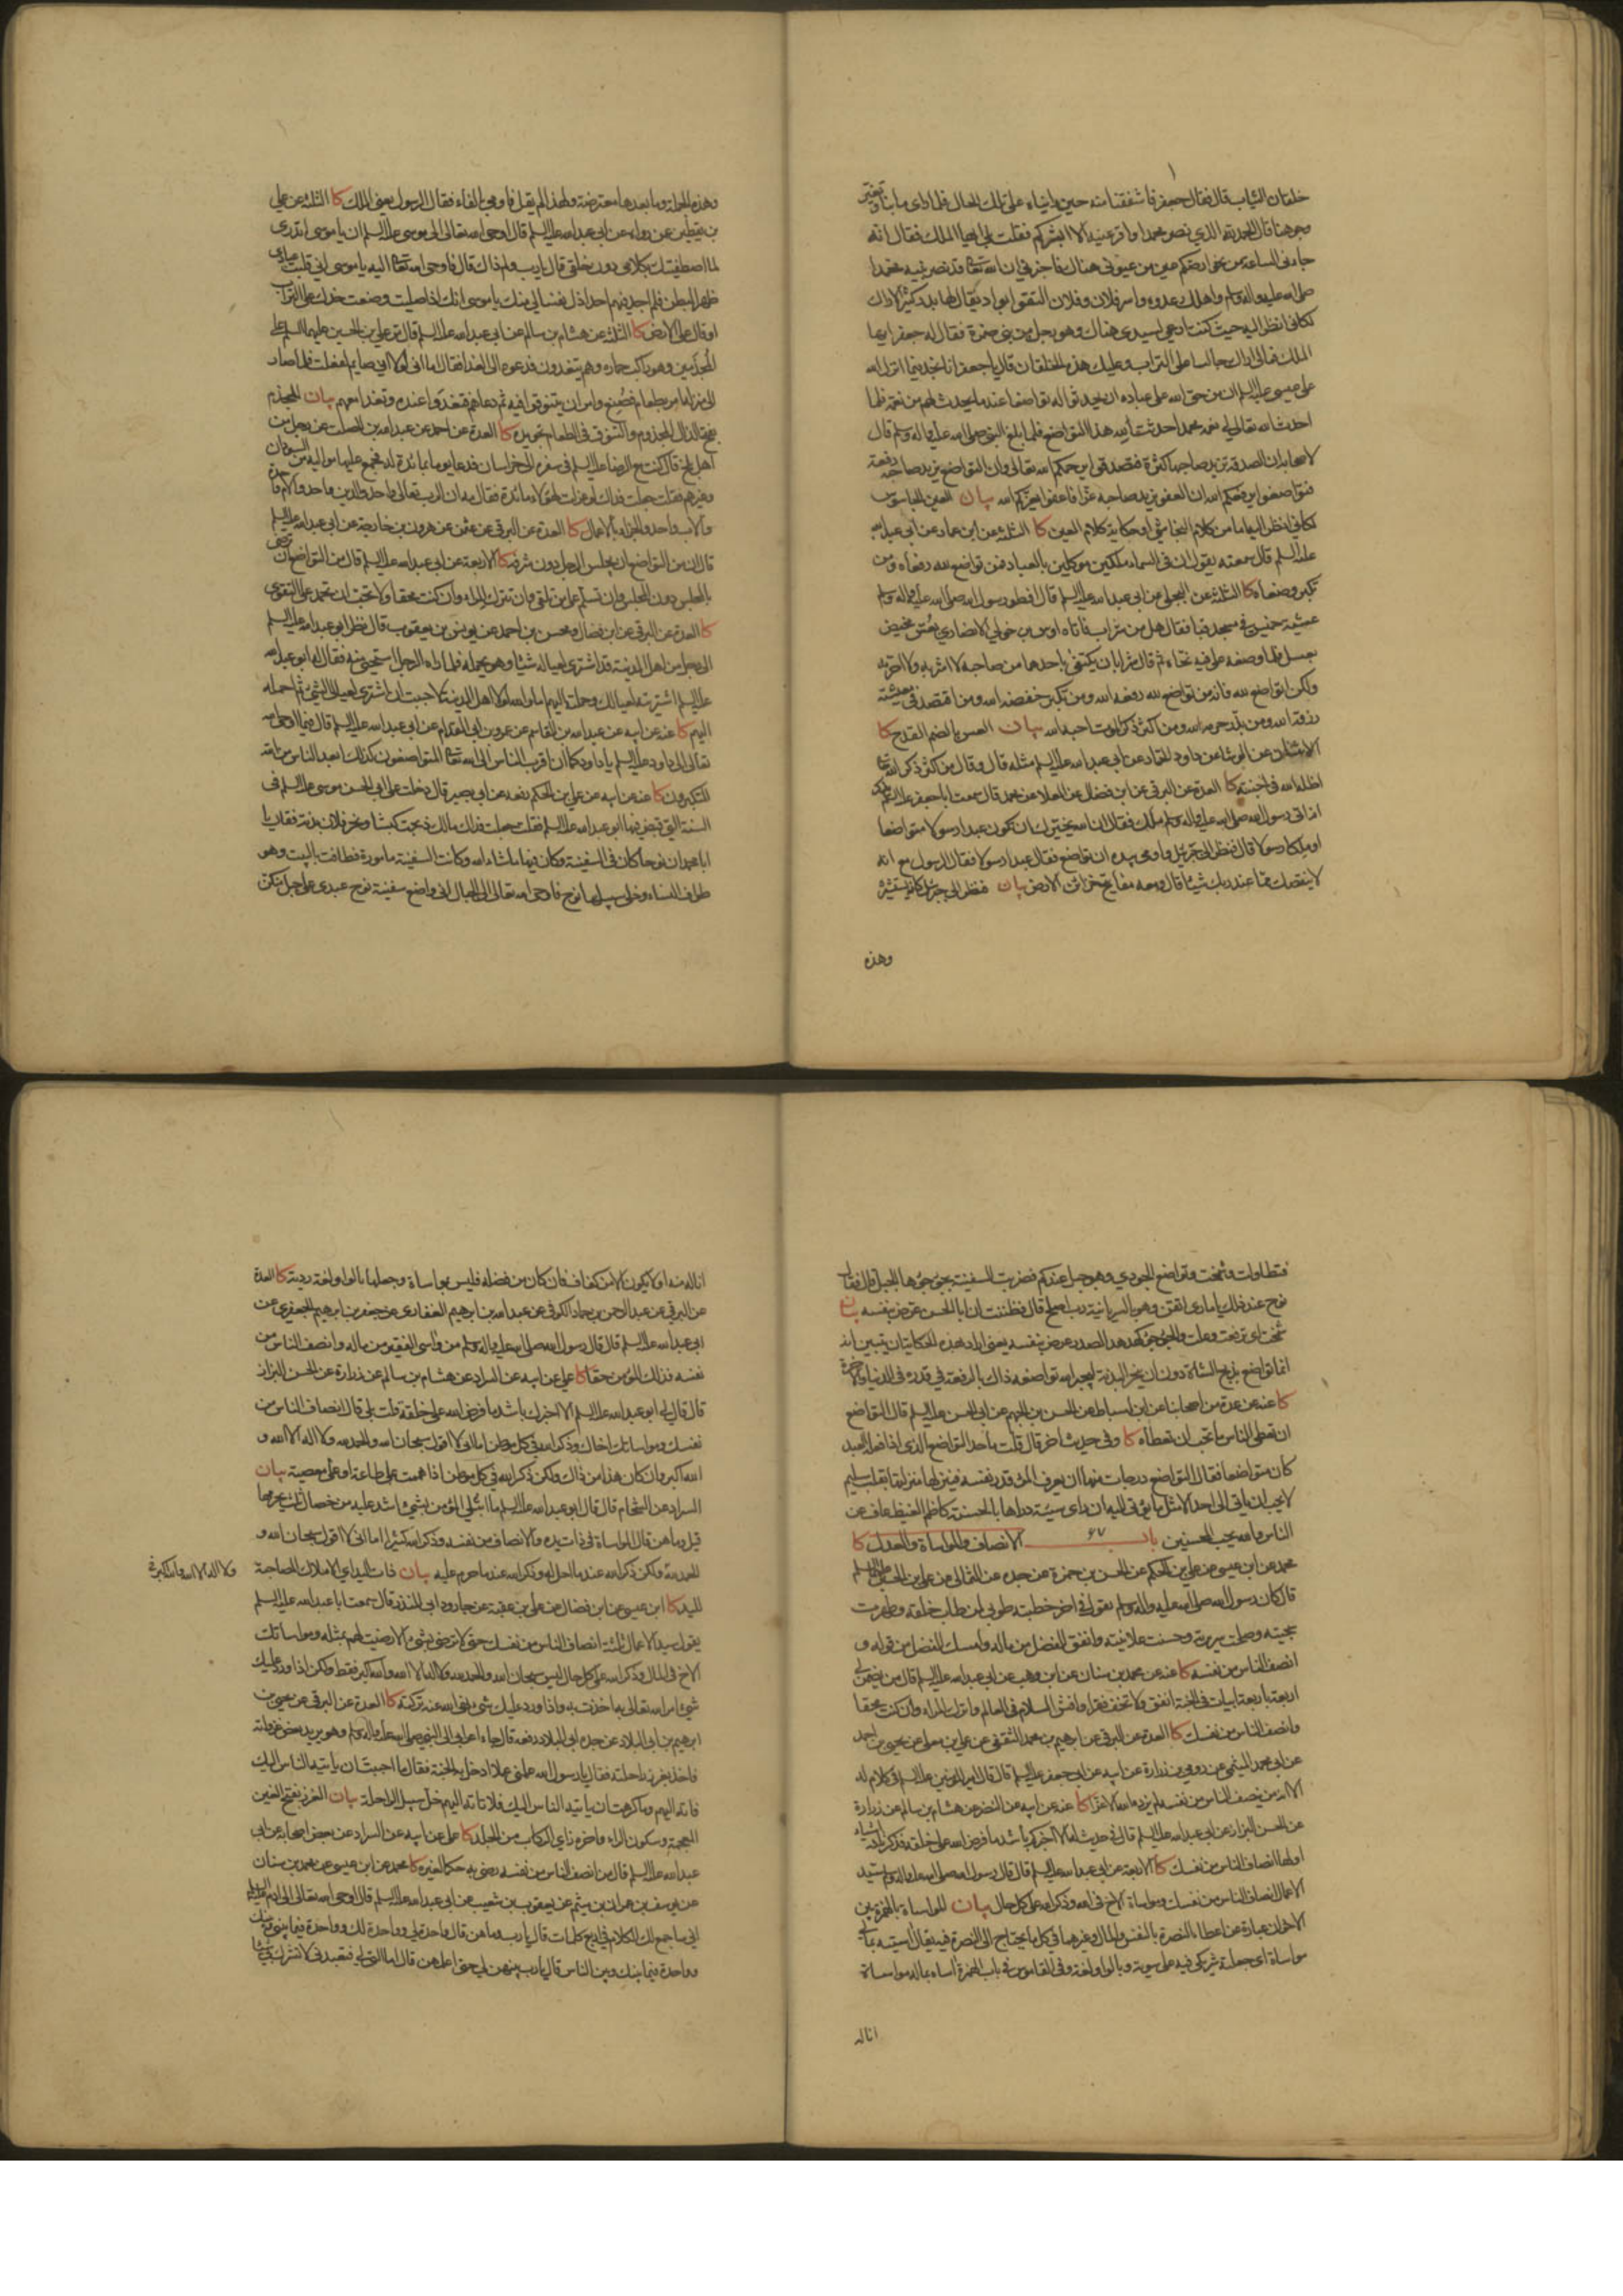 خلقان الثياب قال فقال جعفر فاشفقنا منه حين رايناه على تلك الحال فلما راى ما بنا وتغير
وجوهنا قال الحمد لله الذي نصر محمدا واقر عينه الا ابشركم فقلت بلى ايها الملك فقال انه
جاءنى الساعة من نحو ارضكم عين من عيونى هناك فاخبرنى ان الله تعالى قد نصر نبيه محمدا
صلى الله عليه واله وسلم واهلك عدوه واسر فلان وفلان التقوا بواد يقال لها بدر كثير الاراك
لكانى انظر اليه حيث كنت ارعى لسيدى هناك وهو رجل من بنى ضمرة فقال له جعفر ايها
الملك فمالى اراك جالسا على التراب وعليك هذه الخلقان فقال يا جعفر انا نجد فيما انزل الله
على عيسى عليه السلم ان من حق الله على عباده ان يحدثوا له تواضعا عند ما يحدث لهم من نعمة فلما
احدث الله تعالى لى نعمة بمحمد احدثت لله هذا التواضع فلما بلغ النبى صلى الله عليه واله وسلم قال
لاصحابه ان الصدقة تزيد صاحبها كثرة فتصدقوا يرحمكم الله تعالى وان التواضع يزيد صاحبه رفعة
فتواضعوا يرفعكم الله ان العفو يزيد صاحبه عزا فاعفوا يعزكم الله بيان العين الجاسوس
لكانى انظر اليه اما من كلام النجاشى او حكاية كلام العين كا الثلثة عن ابن عمار عن ابى عبد الله
عليه السلم قال سمعته يقول ان فى السماء ملكين موكلين بالعباد فمن تواضع لله رفعاه ومن
تكبر وضعاه كا الثلثة عن البجلى عن ابى عبد الله عليه السلم قال افطر رسول الله صلى الله عليه واله وسلم
عشية خميس فى مسجد قبا فقال هل من شراب فاتاه اوس بن خولى الانصارى بعس مخيض
بعسل فلما وضعه على فيه نحاه ثم قال شرابان يكتفى باحدهما من صاحبه لا اشربه ولا احرمه
ولكن اتواضع لله فانه من تواضع لله رفعه الله ومن تكبر خفضه الله ومن اقتصد فى معيشته
رزقه الله ومن بذر حرمه الله ومن اكثر ذكر الموت احبه الله بيان العس بالضم القدح كا
الاثنان عن الوشا عن داود الحمار عن ابى عبد الله عليه السلم مثله قال وقال من اكثر ذكر الله تعالى
اظله الله فى جنته كا العدة عن البرقى عن ابن فضال عن العلا عن محمد قال سمعت ابا جعفر عليه السلم يذكر
انه اتى رسول الله صلى الله عليه واله وسلم ملك فقال ان الله يخيرك ان تكون عبدا رسولا متواضعا
او ملكا رسولا قال فنظر الى جبرئيل واومى بيده ان تواضع فقال عبدا رسولا فقال الرسول مع انه
لا ينقصك مما عند ربك شيئا قال ومعه مفاتيح خزائن الارض بيان فنظر الى جبرئيل كانه يستشيره
وهذه
وهذه الجملة وما بعدها معترضة ولهذا لم يقل فاومى بالفاء فقال الرسول يعنى الملك كا الثلثة عن على
بن يقطين عن رواه عن ابى عبد الله عليه السلم قال اوحى الله تعالى الى موسى عليه السلم ان يا موسى اتدرى
لما اصطفيتك بكلامى دون خلقى قال يا رب ولم ذاك قال فاوحى الله تعالى اليه يا موسى انى قلبت عبادى
ظهرا لبطن فلم اجد فيهم احدا اذل نفسا لى منك يا موسى انك اذا صليت وضعت خدك على التراب
او قال على الارض كا الثلثة عن هشام بن سالم عن ابى عبد الله عليه السلم قال مر على بن الحسين عليهما السلم على
المجذمين وهو راكب حماره وهم يتغدون فدعوه الى الغداء فقال اما انى لولا انى صايم لفعلت فلما صار
الى منزله امر بطعام فصنع وامر ان يتنوقوا فيه ثم دعاهم فتغدوا عنده وتغدا معهم بيان المجذم
بفتح الذال المجذوم والتنوق فى الطعام تجويده كا العدة عن احمد عن عبد الله بن الصلت عن رجل من
اهل بلخ قال كنت مع الرضا عليه السلم فى سفره الى خراسان فدعا يوما بمائدة له فجمع عليها مواليه من السودان
وغيرهم فقلت جعلت فداك لو عزلت لهؤلاء مائدة فقال مه ان الرب تعالى واحد والدين واحد والام واحدة
والاب واحد والجزاء بالاعمال كا العدة عن البرقى عن عثمن عن هرون بن خارجة عن ابى عبد الله عليه السلم
قال ان من التواضع ان يجلس الرجل دون شرفه كا الاربعة عن ابى عبد الله عليه السلم قال من التواضع ان ترضى
بالمجلس دون المجلس وان تسلم على من تلقى وان تترك المراء وان كنت محقا ولا تحب ان تحمد على التقوى
كا العدة عن البرقى عن ابن فضال ومحسن بن احمد عن يونس بن يعقوب قال نظر ابو عبد الله عليه السلم
الى رجل من اهل المدينة قد اشترى لعياله شيئا وهو يحمله فلما راه الرجل استحيى منه فقال له ابو عبد الله
عليه السلم اشتريته لعيالك وحملته اليهم اما والله لولا اهل المدينة لاحببت ان اشترى لعيالى الشئ ثم احمله
اليهم كا عنه عن ابيه عن عبد الله بن القاسم عن عمرو بن ابى المقدام عن ابى عبد الله عليه السلم قال فيما اوحى الله
تعالى الى داود عليه السلم يا داود كما ان اقرب الناس الى الله تعالى المتواضعون كذلك ابعد الناس من الله
المتكبرون كا عنه عن ابيه عن على بن الحكم رفعه عن ابى بصير قال دخلت على ابى الحسن موسى عليه السلم فى
السنة التى قبض فيها ابو عبد الله عليه السلم فقلت جعلت فداك مالك ذبحت كبشا ونحر فلان بدنة فقال يا
ابا محمد ان نوحا كان فى السفينة وكان فيها ما شاء الله وكانت السفينة مامورة فطافت بالبيت وهو
طواف النساء وخلى سبيلها نوح فاوحى الله تعالى الى الجبال انى واضع سفينة نوح عبدى على جبل منكن
فتطاولت وشمخت وتواضع الجودى وهو جبل عندكم فضربت السفينة بجؤجؤها الجبل قال فقال
نوح عند ذلك يا مارى اتقن وهو بالسريانية رب اصلح قال فظننت ان ابا الحسن عرض بنفسه بيان
شمخت اى ترفعت وعلت والجؤجؤ كهدهد الصدر عرض بنفسه يعنى اراد بهذه الحكاية ان يتبين انه
انما تواضع بذبح الشاة دون ان ينحر البدنة ليجبر الله تواضعه ذاك بالرفعة فى قدره فى الدنيا والاخرة
كا عنه عن عدة من اصحابنا عن ابن اسباط عن الحسن بن الجهم عن ابى الحسن عليه السلم قال التواضع
ان تعطى الناس ما تحب ان تعطاه كا وفى حديث اخر قال قلت ما حد التواضع الذى اذا فعله العبد
كان متواضعا فقال التواضع درجات منها ان يعرف المرء قدر نفسه فينزلها منزلتها بقلب سليم
لا يحب ان ياتى الى احد الا مثل ما يؤتى اليه ان راى سيئة دراها بالحسنة كاظم الغيظ عاف عن
الناس والله يحب المحسنين باب ٦٧ الانصاف والمواساة والعدل كا
محمد عن ابن عيسى عن على بن الحكم عن الحسن بن حمزة عن جده عن الثمالى عن على بن الحسين عليهما السلم
قال كان رسول الله صلى الله عليه واله وسلم يقول فى اخر خطبته طوبى لمن طاب خلقه وطهرت
سجيته وصلحت سريرته وحسنت علانيته وانفق الفضل من ماله وامسك الفضل من قوله و
انصف الناس من نفسه كا عنه عن محمد بن سنان عن ابن وهب عن ابى عبد الله عليه السلم قال من يضمن لى
اربعة باربعة ابيات فى الجنة انفق ولا تخف فقرا وافش السلام فى العالم واترك المراء وان كنت محقا
وانصف الناس من نفسك كا العدة عن البرقى عن ابرهيم بن محمد الثقفى عن على بن معلى عن يحيى بن احمد
عن ابى محمد الميثمى عن رومى بن زرارة عن ابيه عن ابى جعفر عليه السلم قال قال امير المؤمنين عليه السلم فى كلام له
الا انه من ينصف الناس من نفسه لم يزده الله الا عزا كا عنه عن ابيه عن النضر عن هشام بن سالم عن زرارة
عن الحسن البزاز عن ابى عبد الله عليه السلم قال فى حديث له الا اخبركم باشد ما فرض الله على خلقه فذكر ثلثة اشياء
اولها انصاف الناس من نفسك كا الاربعة عن ابى عبد الله عليه السلم قال قال رسول الله صلى الله عليه واله وسلم سيد
الاعمال انصاف الناس من نفسك ومواساة الاخ فى الله وذكر الله على كل حال بيان المواساة بالهمزة بين
الاخوان عبارة عن اعطاء النصرة بالنفس والمال وغيرهما فى كل ما يحتاج الى النصرة فيه يقال اسيته بمالى
مواساة اى جعلته شريكى فيه على سوية وبالواو لغة وفى القاموس فى باب الهمزة اساه بماله مواساة
اناله
اناله منه او لا يكون الا من كفاف فان كان من فضلة فليس بمواساة وجعلها بالواو لغة ردية كا العدة
عن البرقى عن عبد الرحمن بن حماد الكوفى عن عبد الله بن ابرهيم الغفارى عن جعفر بن ابرهيم الجعفرى عن
ابى عبد الله عليه السلم قال قال رسول الله صلى الله عليه واله وسلم من واسى الفقير من ماله وانصف الناس من
نفسه فذلك المؤمن حقا كا على عن ابيه عن السراد عن هشام بن سالم عن زرارة عن الحسن البزاز
قال قال لى ابو عبد الله عليه السلم الا اخبرك باشد ما فرض الله على خلقه قلت بلى قال انصاف الناس من
نفسك ومواساتك اخاك وذكر الله فى كل موطن اما انى لا اقول سبحان الله والحمد لله ولا اله الا الله و
الله اكبر وان كان هذا من ذاك ولكن ذكر الله فى كل موطن اذا هممت على طاعة او على معصية بيان
السراد عن الشحام قال قال ابو عبد الله عليه السلم ما ابتلى المؤمن بشئ اشد عليه من خصال ثلث يحرمها
قيل وما هن قال المواساة فى ذات يده والانصاف من نفسه وذكر الله كثيرا اما انى لا اقول سبحان الله و
الحمد لله ولكن ذكر الله عند ما احل له وذكر الله عند ما حرم عليه بيان ذات اليد اى الاملاك المصاحبة
ولا اله الا الله والله اكبر
لليد كا ابن عيسى عن ابن فضال عن على بن عقبة عن جارود ابى المنذر قال سمعت ابا عبد الله عليه السلم
يقول سيد الاعمال ثلثة انصاف الناس من نفسك حتى لا ترضى بشئ الا رضيت لهم بمثله ومواساتك
الاخ فى المال وذكر الله على كل حال ليس سبحان الله والحمد لله ولا اله الا الله والله اكبر فقط ولكن اذا ورد عليك
شئ امر الله تعالى به اخذت به واذا ورد عليك شئ نهى الله عنه تركته كا العدة عن البرقى عن يحيى بن
ابرهيم بن ابى البلاد عن جده ابى البلاد رفعه قال جاء اعرابى الى النبى صلى الله عليه واله وسلم وهو يريد بعض غزواته
فاخذ بغرز راحلته فقال يا رسول الله علمنى عملا ادخل به الجنة فقال ما احببت ان ياتيه الناس اليك
فاته اليهم وما كرهت ان ياتيه الناس اليك فلا تاته اليهم خل سبيل الراحلة بيان الغرز بفتح الغين
المعجمة وسكون الراء واخره زاى الركاب من الجلد كا على عن ابيه عن السراد عن بعض اصحابه عن ابى
عبد الله عليه السلم قال من انصف الناس من نفسه رضى به حكما لغيره كا محمد عن ابن عيسى عن محمد بن سنان
عن يوسف بن عمران بن ميثم عن يعقوب بن شعيب عن ابى عبد الله عليه السلم قال اوحى الله تعالى الى ادم عليه السلم
انى ساجمع لك الكلام فى اربع كلمات قال يا رب وما هن قال واحدة لى وواحدة لك وواحدة فيما بينى وبينك
وواحدة فيما بينك وبين الناس قال يا رب بينهن لى حتى اعلمهن قال اما التى لى فتعبدنى لا تشرك بى شيئا